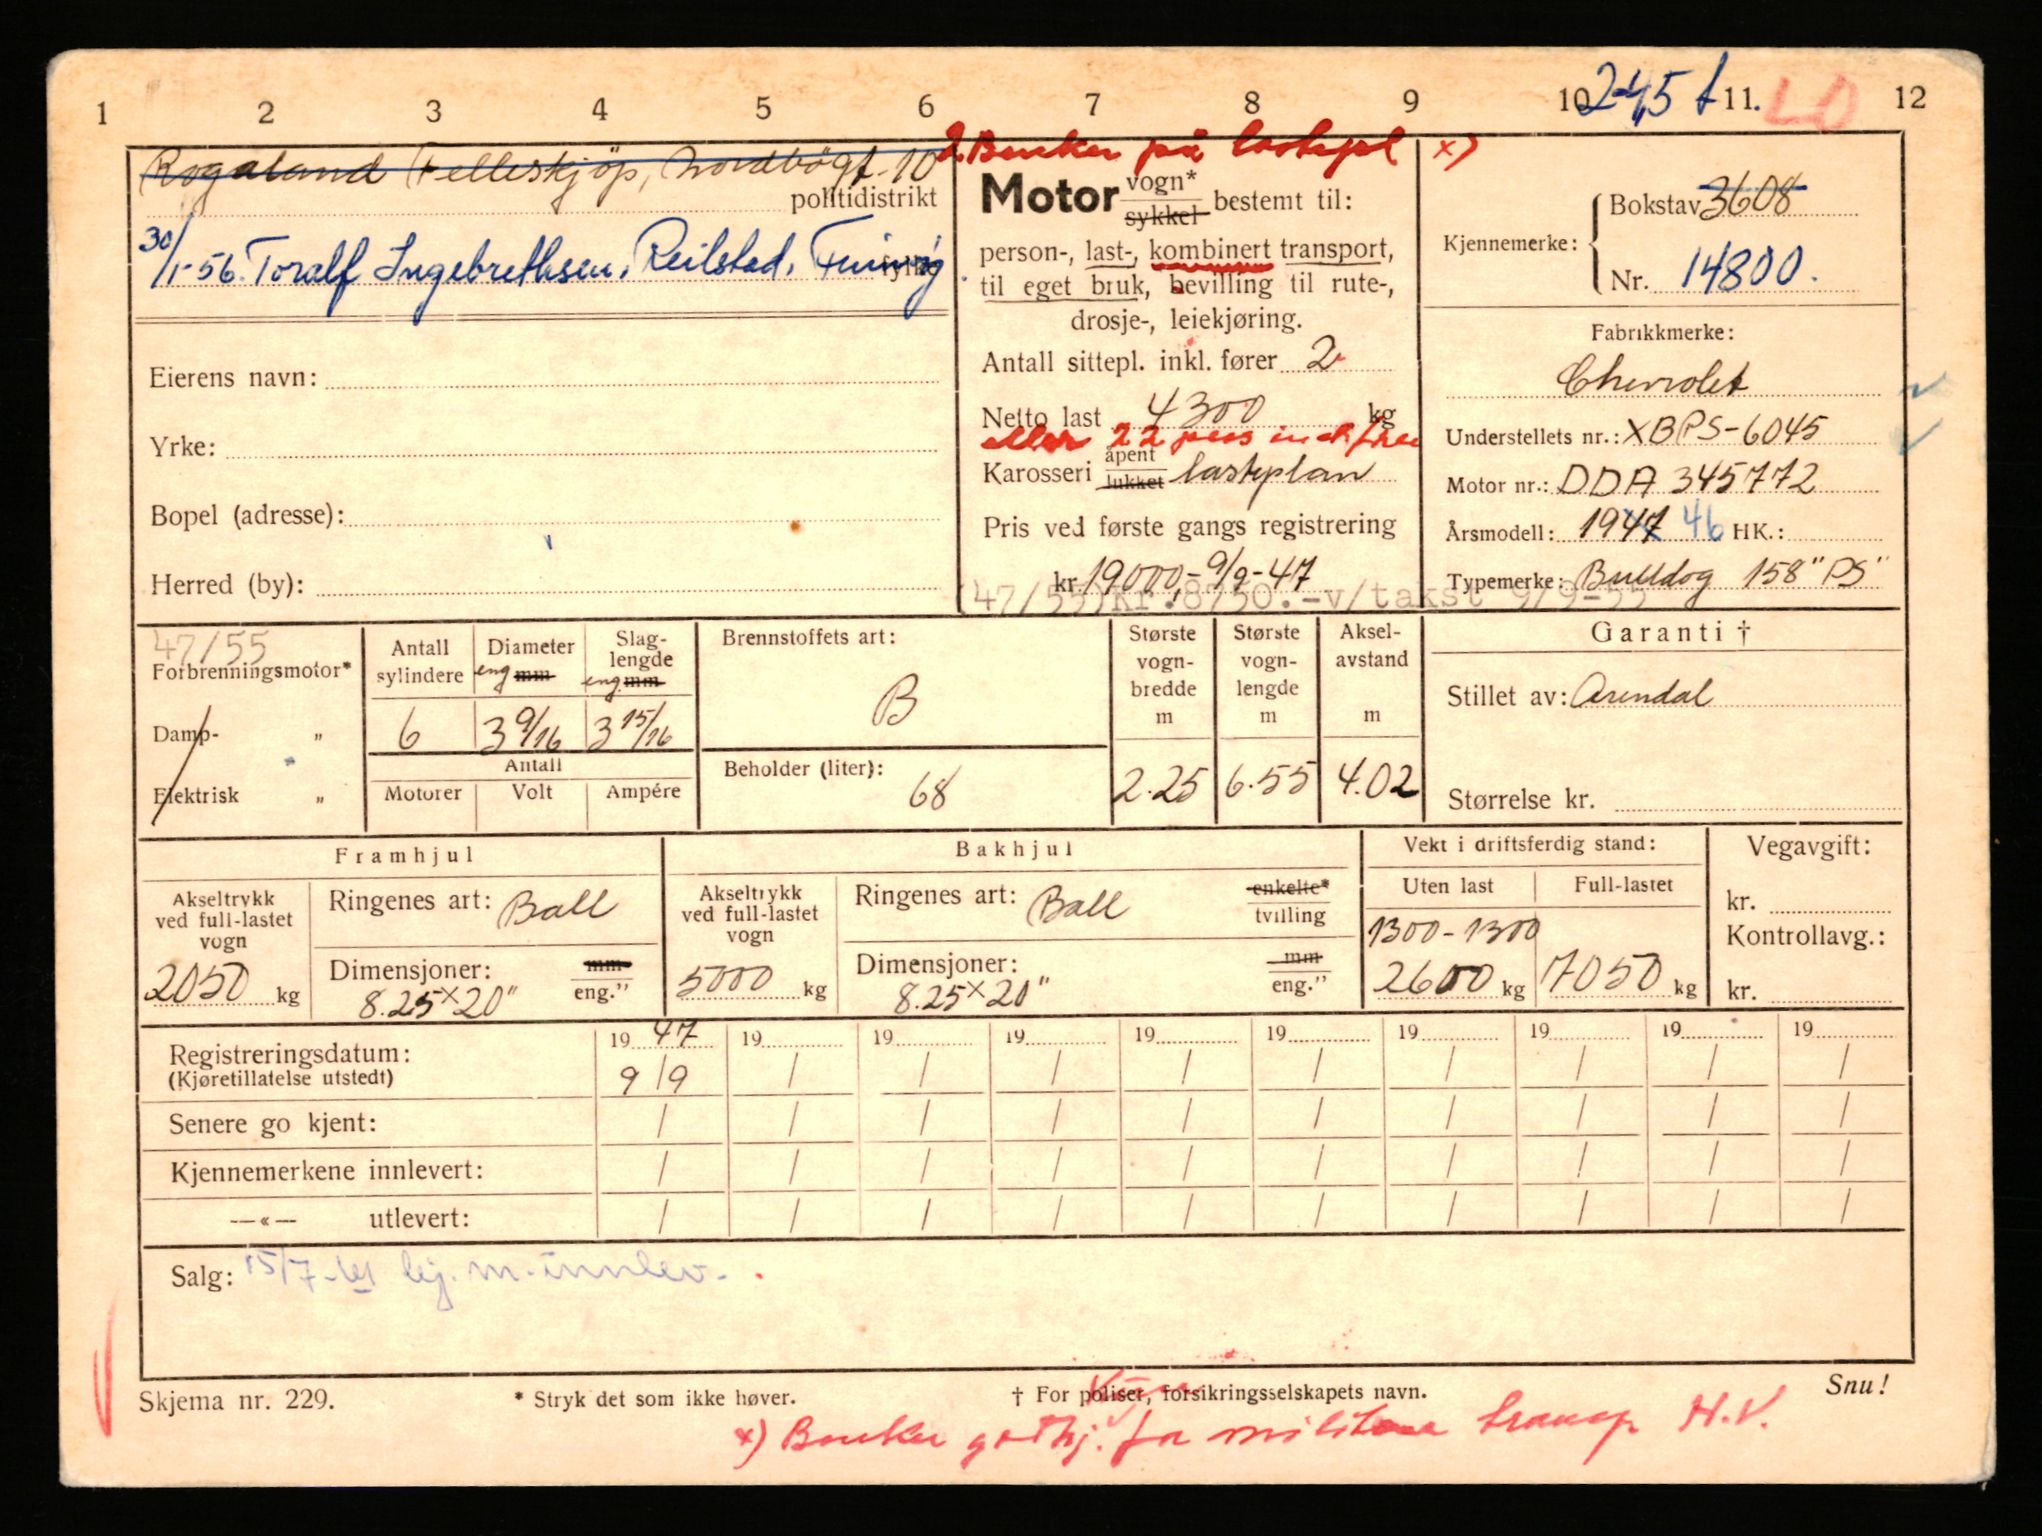 1 2 3 4 5 6 7 8 9 10 245 t 11. LO 12
Rogaland Felleskjøp, Nordbøgt. 10
politidistrikt
30/1-56. Toralf Ingebrethsen, Reilstad,
fylke
Eierens navn:
Yrke:
Bopel (adresse):
Herred (by):
2. Benker på lastepl x)
Motor vogn* sykkel bestemt til:
person-, last-, kombinert transport,
til eget bruk, bevilling til rute-,
drosje-, leiekjøring.
Antall sittepl. inkl. fører 2
Netto last 4300 kg
eller 22 pers incl.
Karosseri åpent lukket lasteplan
Pris ved første gangs registrering
kr 19000,- 9/9-47
(47/55) Kr.8750.-v/takst 9/9-55
Kjennemerke: Bokstav 3608
Nr. 14800.
Fabrikkmerke:
Chevrolet
Understellets nr.: XBPS-6045
Motor nr.: DDA 345772
Årsmodell: 1947 46 HK.:
Typemerke: Bulldog 158" PS"
47/55
Forbrenningsmotor*
Damp- "
Elektrisk "
Antall sylindere
Diameter eng mm
Slaglengde eng. mm
6 3 9/16 3 15/16
Antall
Motorer Volt Ampére
Brennstoffets art:
B
Beholder (liter):
68
Største vognbredde m
2.25
Største vognlengde m
6.55
Akselavstand m
4.02
Garanti †
Stillet av: Arendal
Størrelse kr.
Framhjul
Akseltrykk ved full-lastet vogn
2050 kg
Ringenes art: Ball
Dimensjoner: mm eng."
8.25x20"
Bakhjul
Akseltrykk ved full-lastet vogn
5000 kg
Ringenes art: Ball enkelte* tvilling
Dimensjoner: mm eng."
8.25x20"
Vekt i driftsferdig stand:
Uten last Full-lastet
1300-1300
2600 kg 7050 kg
Vegavgift:
kr.
Kontrollavg.:
kr.
19 47 19 19 19 19 19 19 19 19 19
Registreringsdatum:
(Kjøretillatelse utstedt)
9/9 / / / / / / / / /
Senere go kjent: / / / / / / / / / /
Kjennemerkene innlevert: / / / / / / / / / /
—«— utlevert: / / / / / / / / / /
Salg: 15/7-61 kj.m.innlev.
Skjema nr. 229.
* Stryk det som ikke høver.
† For poliser, forsikringsselskapets navn.
Snu!
x) Benker godkj. for militære transp H.V.